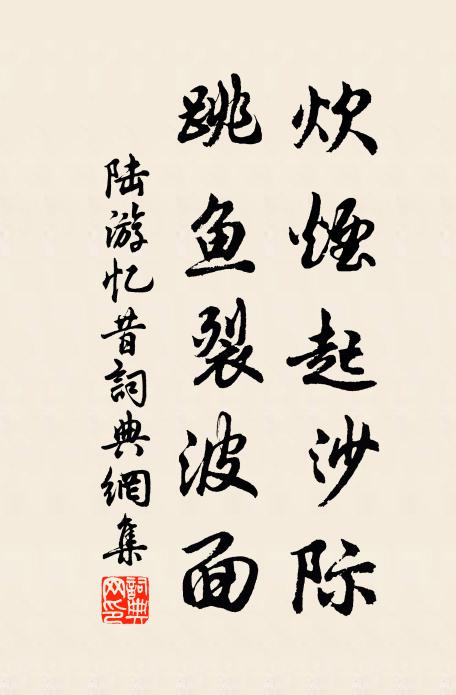 炊煙起沙际
跳鱼裂波面
陆游忆昔詞典網集
詞典网印